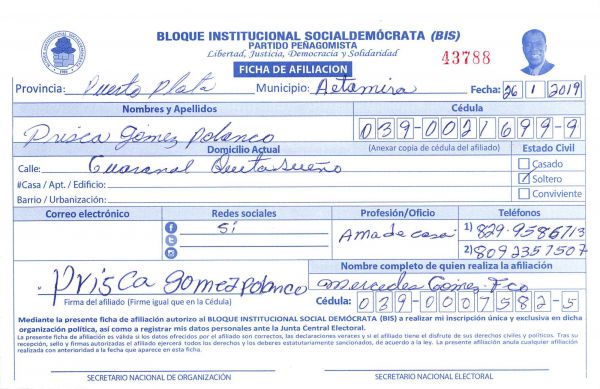 BLOQUE INSTITUCIONAL SOCIALDEMÓCRATA (BIS)
PARTIDO PEÑAGOMISTA
Libertad, Justicia, Democracia y Solidaridad
FICHA DE AFILIACION
43788
Provincia: Puerto Plata Municipio: Altamira Fecha: 26 1 2019
Nombres y Apellidos Cédula
Prisca Gómez Polanco 039-0021699-9
Domicilio Actual (Anexar copia de cédula del afiliado) Estado Civil
Calle: Guaranal Quita Sueño Casado
#Casa / Apt. / Edificio: Soltero
Barrio / Urbanización: Conviviente
Correo electrónico Redes sociales Profesión/Oficio Teléfonos
Sí Ama de casa 1) 829-9586713
2) 809 2357507
Prisca Gomez Polanco
Nombre completo de quien realiza la afiliación
Mercedes Gómez Fco
Firma del afiliado (Firme igual que en la Cédula) Cédula: 039-0007582-5
Mediante la presente ficha de afiliación autorizo al BLOQUE INSTITUCIONAL SOCIAL DEMÓCRATA (BIS) a realizar mi inscripción única y exclusiva en dicha
organización política, así como a registrar mis datos personales ante la Junta Central Electoral.
La presente ficha de afiliación es válida si los datos ofrecidos por el afiliado son correctos, las declaraciones veraces y si el afiliado tiene el disfrute de sus derechos civiles y políticos. Tras su
recepción, sello y firmas autorizadas el afiliado ejercerá todos los derechos y los deberes estatutariamente sancionados, de acuerdo a la ley. La presente afiliación anula cualquier afiliación
realizada con anterioridad a la fecha que aparece en esta ficha.
SECRETARIO NACIONAL DE ORGANIZACIÓN SECRETARIO NACIONAL ELECTORAL